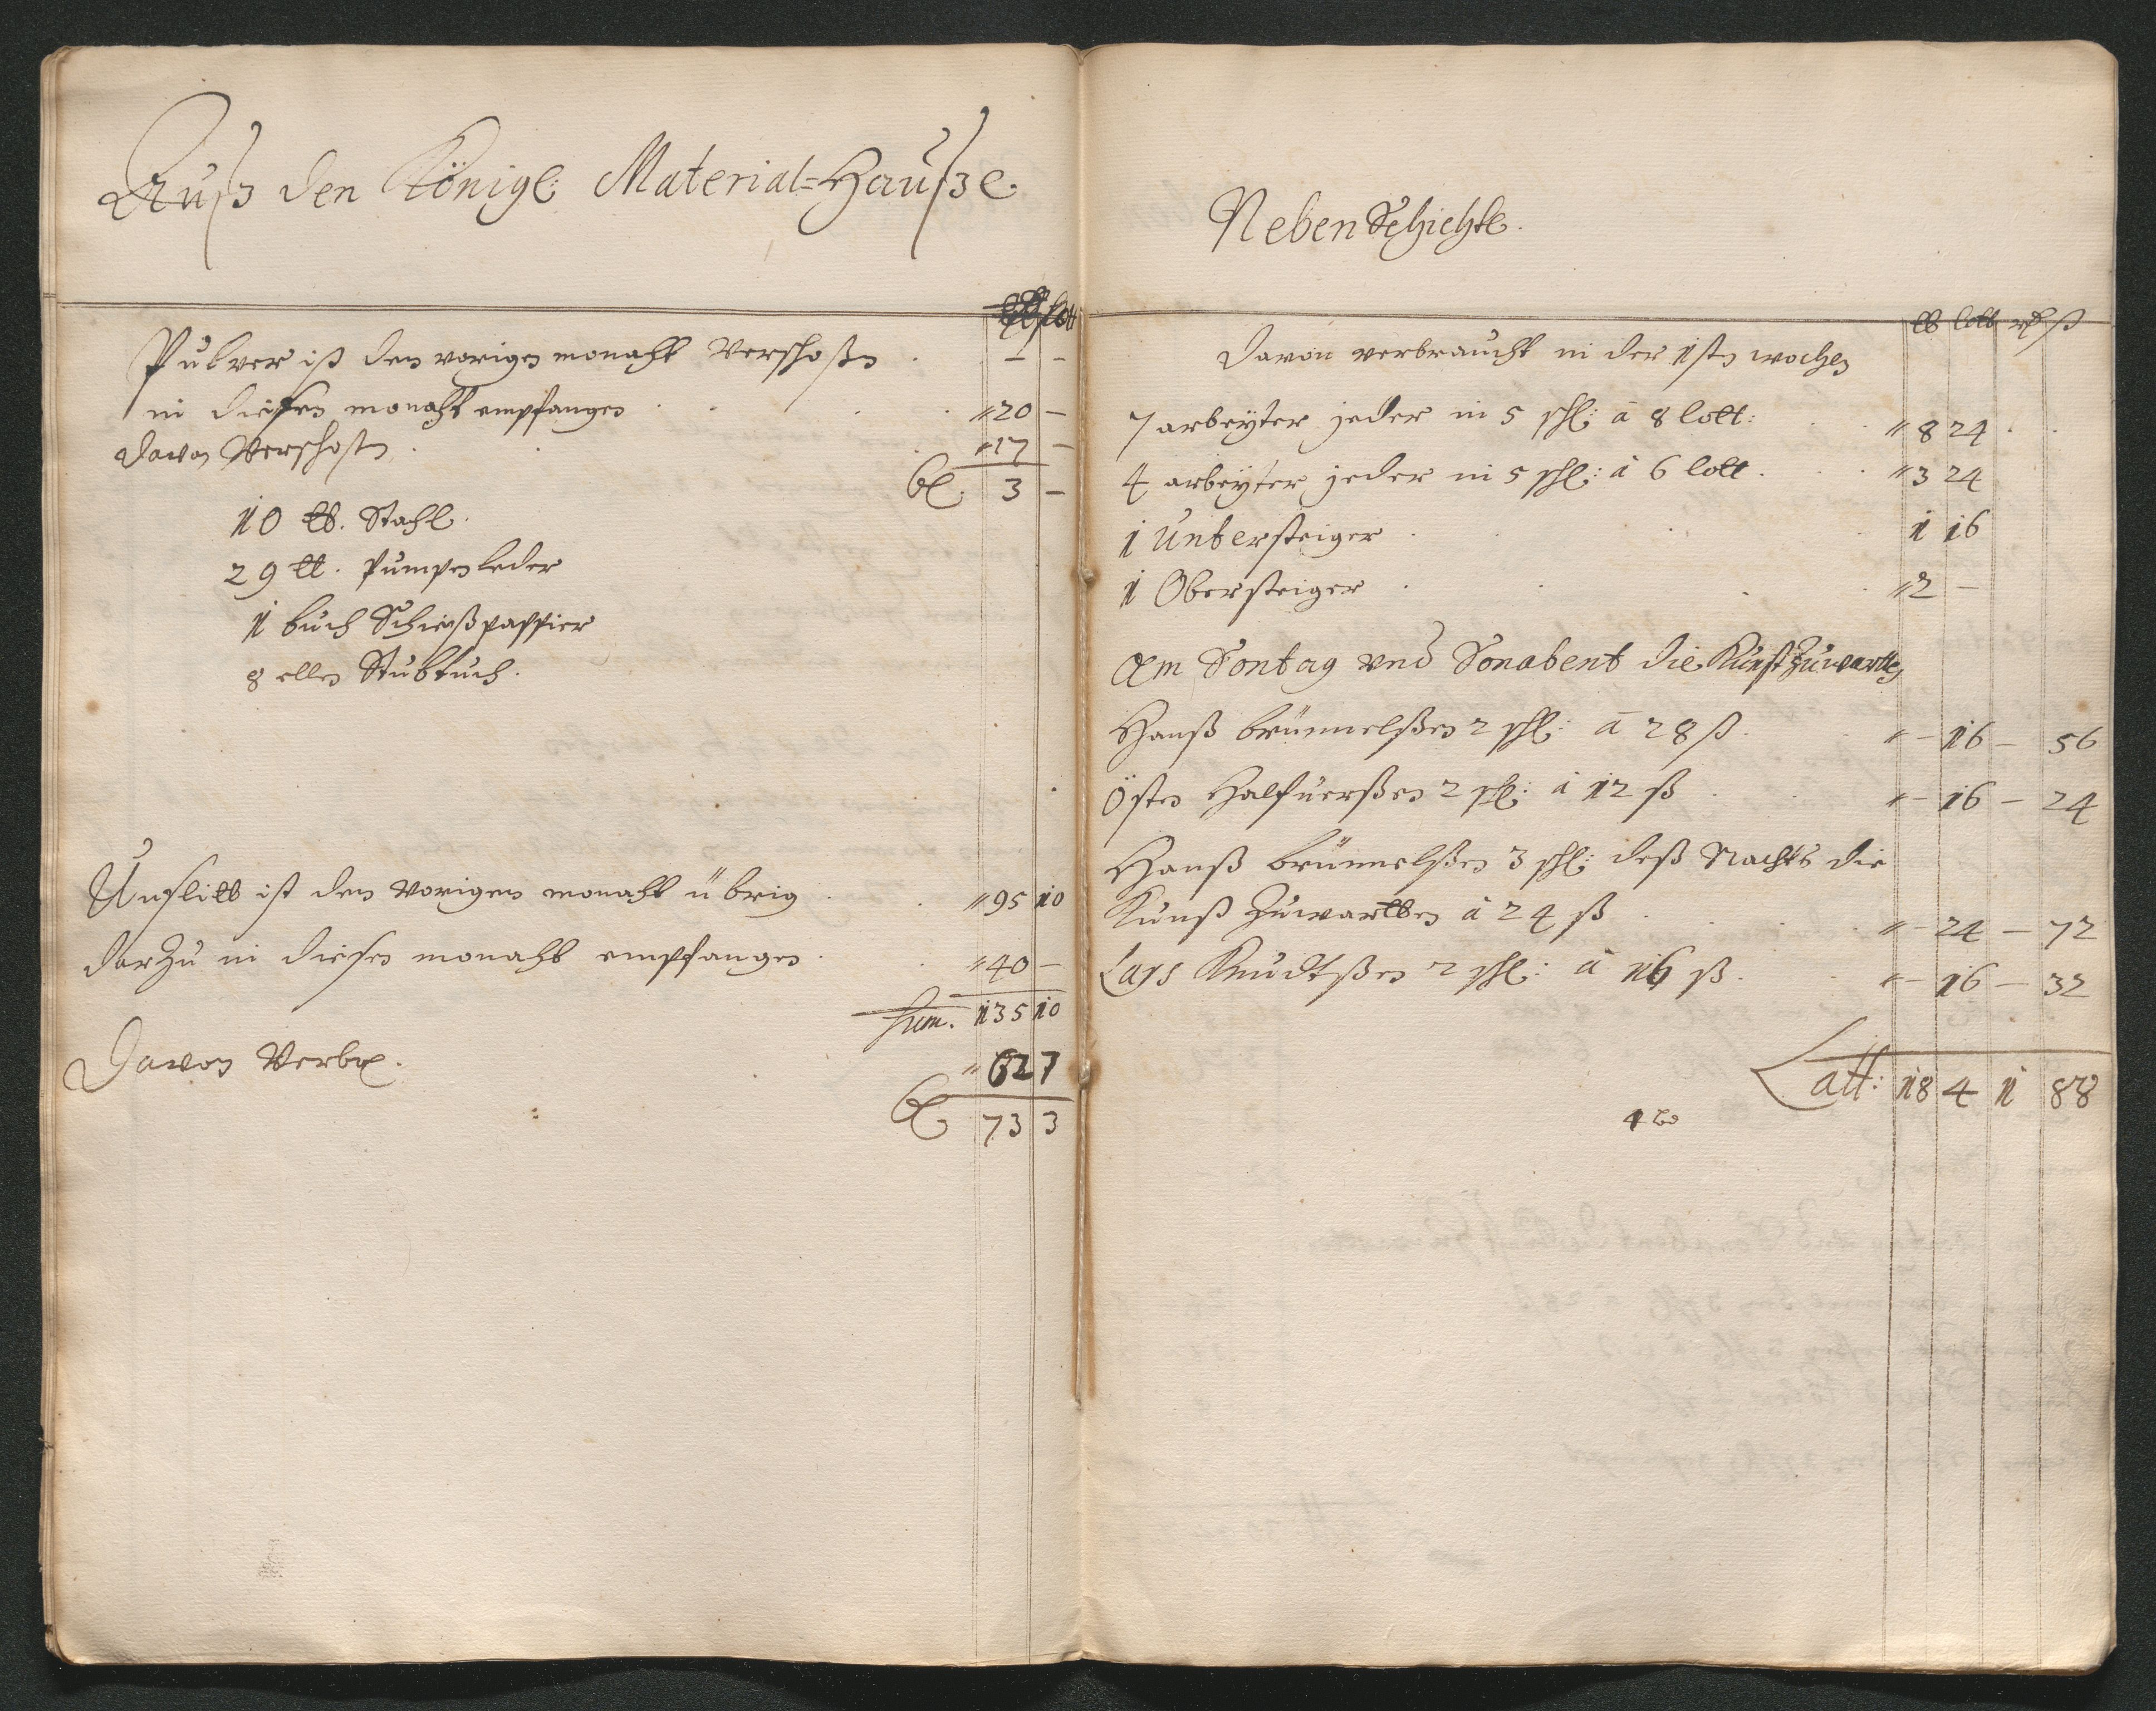 Auß den Königl: Material=Hauße
lott
Pulver iß den vorigen monaht Verschoßen . – –
in diesen monaht empfangen . . . . " 20 –
davon Verschoßen . . . " 17 –
Bl. 3 –
10 ℔. Stahl.
29 ℔. Pumpen leder
1 buch Schießpappier
8 ellen Stubtuch.
Unßlitt ist den Vorigen monaht übrig . . " 95 10
darzu in diesen monaht empfangen . . " 40 –
Sum. 135 10
Davon Verbr. " 62 7
Bl 73 3
Neben Schichte.
℔ lott rd ß
Davon verbraucht in der 1sten wochen
7 arbeyter jeder in 5 schl: â 8 lott: . . " 8 24 . .
4 arbeyter jeder in 5 schl: â 6 lott . . . " 3 24
1 Untersteiger . . . 1 16
1 Obersteiger . . . . " 2 –
Am Sontag und Sonabent die Kunst zuwartten
Hanß brünnelßen 2 schl: â 28 ß . . " – 16 – 56
Östen Halfuerßen 2 schl: â 12 ß . . " – 16 – 24
Hanß brünnelßen 3 schl: deß Nachts die
Kunst zuwartten â 24 ß . . . . " – 24 – 72
Lars Knudtßen 2 schl: â 16 ß . . " – 16 – 32
Latt: 18 4 1 88